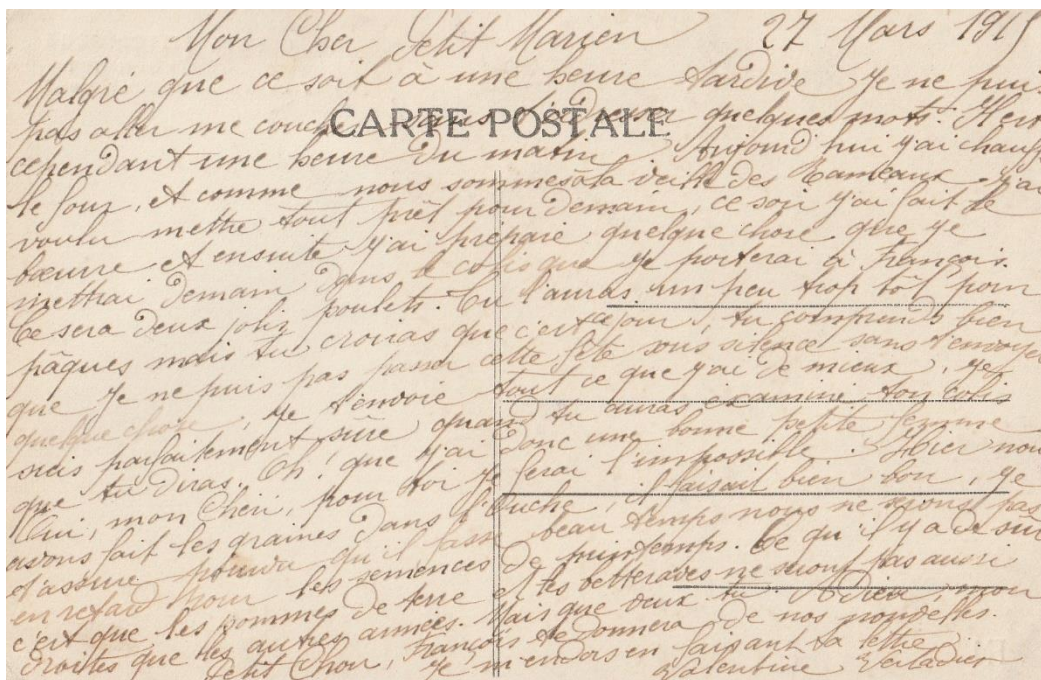 Mon Cher Petit Marien 27 Mars 1915
Malgré que ce soit à une heure tardive je ne puis
pas aller me coucher sans t'adresser quelques mots. Il est
CARTE POSTALE
cependant une heure du matin. Aujourd'hui j'ai chauffé
le four, et comme nous sommes à la veille des Rameaux j'ai
voulu mettre tout prêt pour demain, ce soir j'ai fait le
bœurre et ensuite j'ai préparé quelque chose que je
mettrai demain dans le colis que je porterai à François.
Ce sera deux jolis poulets. Tu l'auras un peu trop tôt pour
pâques mais tu croiras que c'est ce jour, tu comprends bien
que je ne puis pas passer cette fête sous silence sans t'envoyer
quelque chose, je t'envoie tout ce que j'ai de mieux, je
suis parfaitement sûre quand tu auras examiné ton colis
que tu diras. Oh! que j'ai donc une bonne petite femme
Oui, mon Chéri, pour toi je ferai l'impossible. Hier nous
avons fait les graines dans l'Ouche, il faisait bien bon, je
t'assure pourvu qu'il fasse beau temps nous ne serons pas
en retard pour les semences de printemps. Ce qu'il y a de sur
c'est que les pommes de terre et les betteraves ne seront pas aussi
droites que les autres années. Mais que veux tu. Adieu, mon
Petit Chou, François te donnera de nos nouvelles.
Je m'endors en faisant ta lettre
Valentine